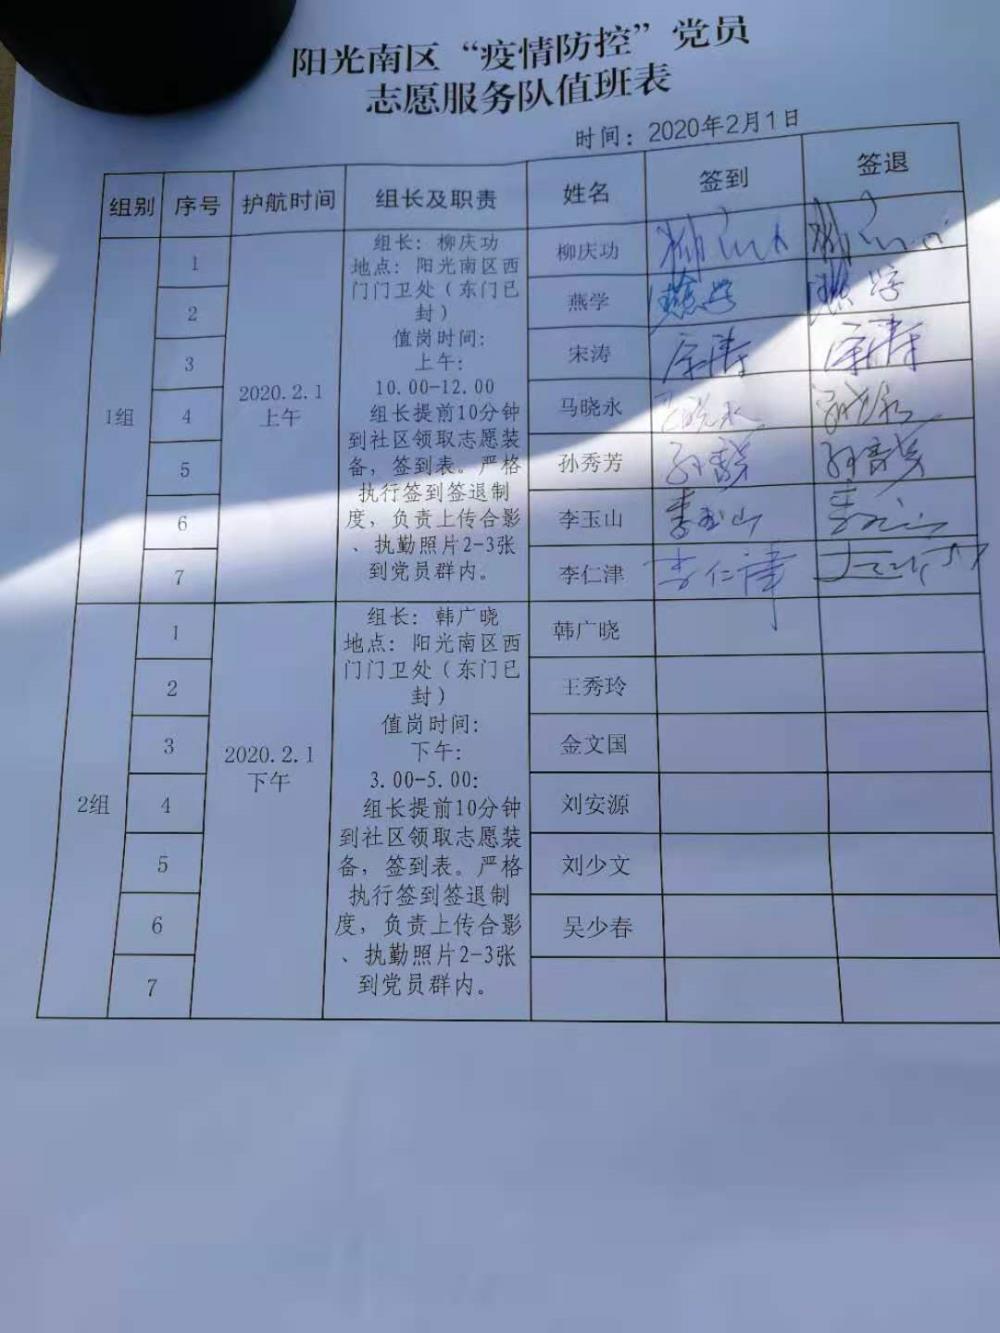 阳光南区“疫情防控”党员
志愿服务队值班表
时间：2020年2月1日
组别 序号 护航时间 组长及职责 姓名 签到 签退
1组
2020.2.1
上午
组长：柳庆功
地点：阳光南区西
门门卫处（东门已
封）
值岗时间：
上午：
10.00-12.00
组长提前10分钟
到社区领取志愿装
备，签到表。严格
执行签到签退制
度，负责上传合影
、执勤照片2-3张
到党员群内。
1 柳庆功
2 燕学 燕学 燕学
3 宋涛 宋涛 宋涛
4 马晓永 马晓永
5 孙秀芳 孙秀芳 孙秀芳
6 李玉山 李玉山 李玉山
7 李仁津 李仁津
2组
2020.2.1
下午
组长：韩广晓
地点：阳光南区西
门门卫处（东门已
封）
值岗时间：
下午：
3.00-5.00:
组长提前10分钟
到社区领取志愿装
备，签到表。严格
执行签到签退制
度，负责上传合影
、执勤照片2-3张
到党员群内。
1 韩广晓
2 王秀玲
3 金文国
4 刘安源
5 刘少文
6 吴少春
7